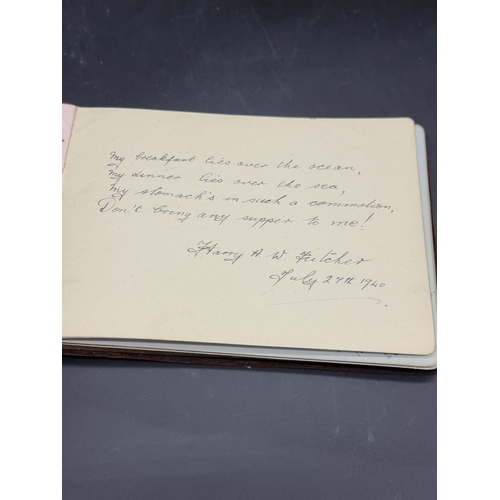 My breakfast lies over the ocean,
My dinner lies over the sea,
My stomach's in such a commotion,
Don't bring any supper to me!
Harry A W Futcher
July 27th 1940.